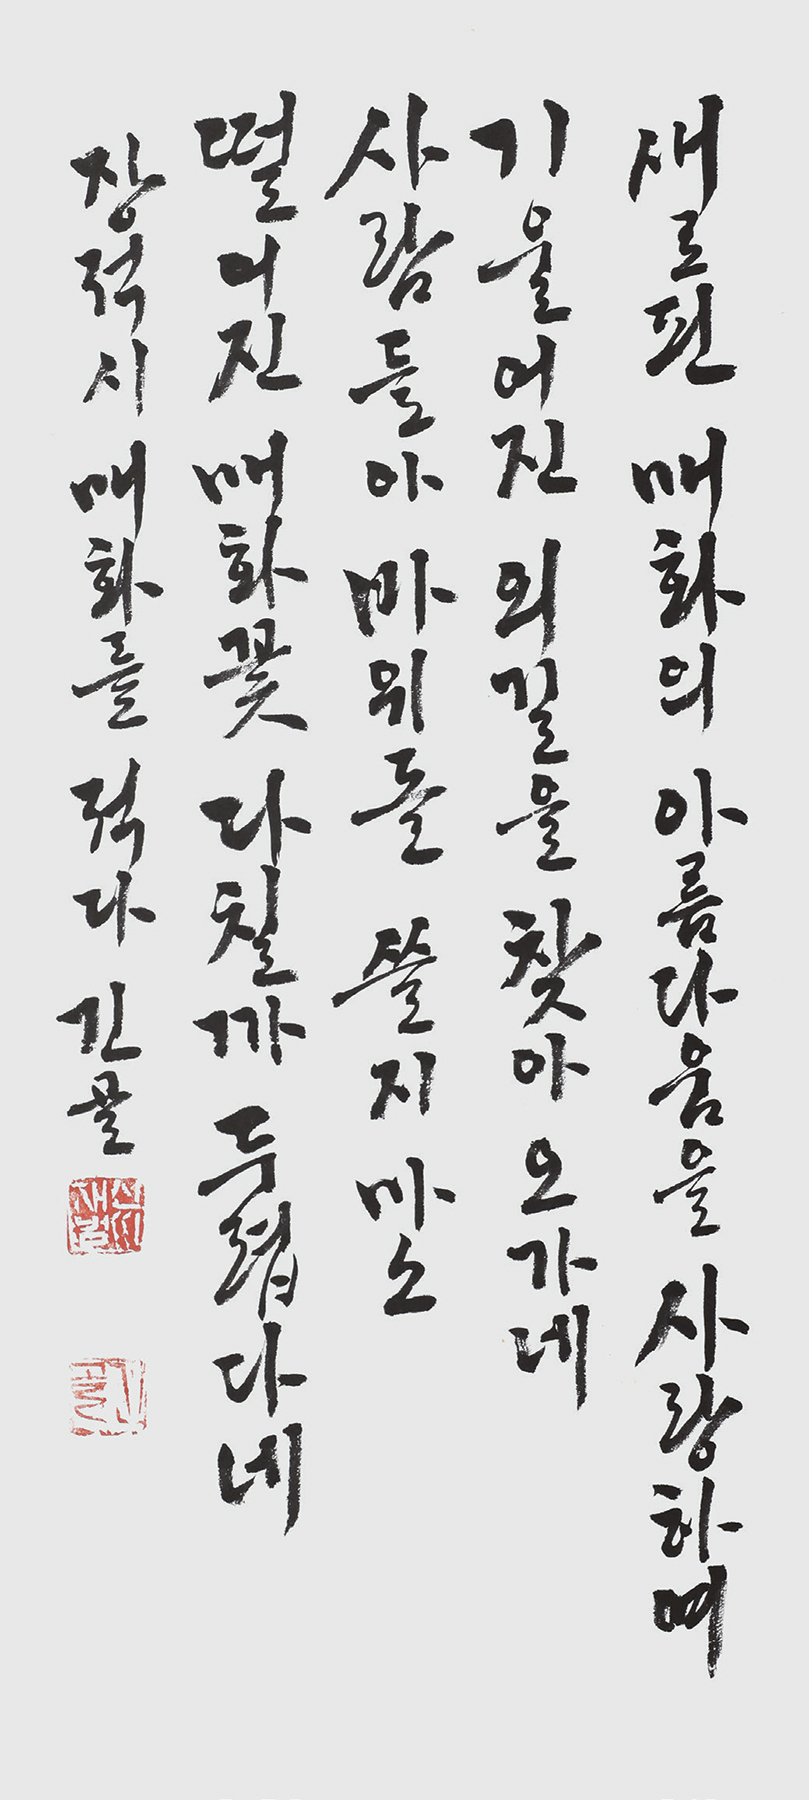 새로핀 매화의 아름다움을 사랑하며
기울어진 외길을 찾아 오가네
사람들아 바위돌 쓸지 마소
떨어진 매화꽃 다칠까 두렵다네
장적시 매화를 적다 긴물